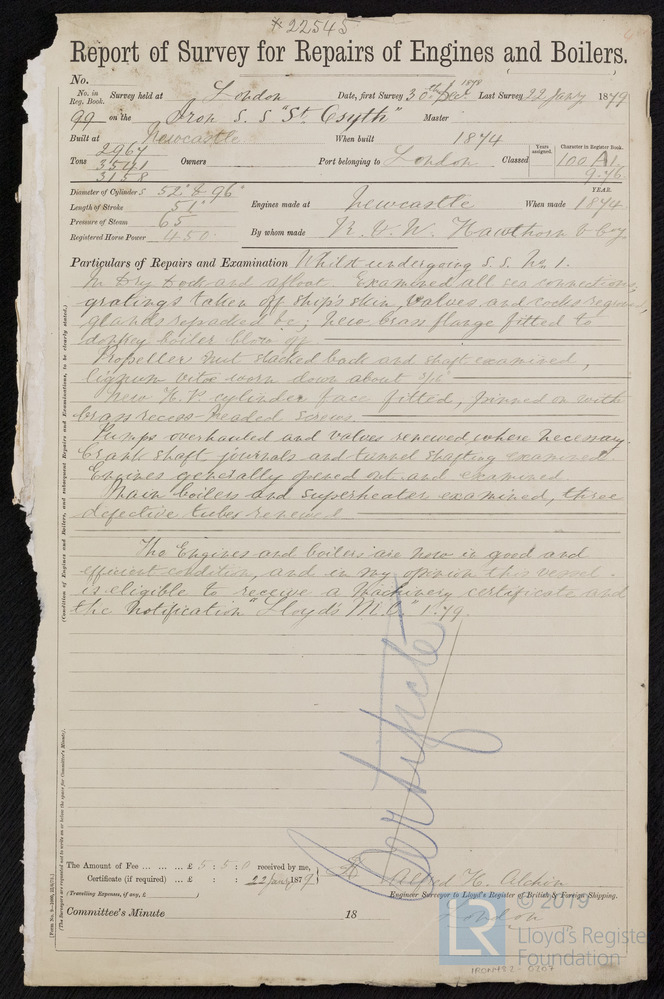 * 22545
Report of Survey for Repairs of Engines and Boilers.
No.
No. in Reg. Book. Survey held at London Date, first Survey 30th Decr. 1878 Last Survey 22 Jany 1879
99 on the Iron S. S. "St. Osyth" Master
Built at Newcastle When built 1874
2967
Tons 3541 Owners Port belonging to London Classed Years assigned. Character in Register Book. 100 A1
3158 9.76
Diameter of Cylinders 52" & 96" YEAR.
Length of Stroke 51" Engines made at Newcastle When made 1874
Pressure of Steam 65
Registered Horse Power 450 By whom made R. & W. Hawthorn & Coy
Particulars of Repairs and Examination Whilst undergoing S. S. No 1.
In Dry Dock and afloat. Examined all sea connections,
gratings taken off ship's skin, valves and cocks reground,
glands repacked &c; New brass flange fitted to
donkey boiler blow off.
Propeller nut slacked back and shaft examined,
lignum vitæ worn down about 3/16"
New H. P. cylinder face fitted, pinned on with
brass recess-headed screws.
Pumps overhauled and valves renewed where necessary.
Crank shaft journals and tunnel shafting examined.
Engines generally opened out and examined.
Main boilers and superheater examined, three
defective tubes renewed.
The Engines and boilers are now in good and
efficient condition, and in my opinion this vessel
is eligible to receive a Machinery certificate and
the notification "Lloyd's M.C." 1.79.
Certificate
(Condition of Engines and Boilers, and subsequent Repairs and Examinations, to be clearly stated.)
(The Surveyors are requested not to write on or below the space for Committee's Minute).
The Amount of Fee ... £ 5 : 5 : 0 received by me,
Certificate (if required) ... £ : : 22 Jany 1879
(Travelling Expenses, if any, £ )
Alfred H. Alchin
Engineer Surveyor to Lloyd's Register of British & Foreign Shipping.
Committee's Minute 18
London
© 2019
LR
Lloyd's Register
Foundation
IRON482-0207